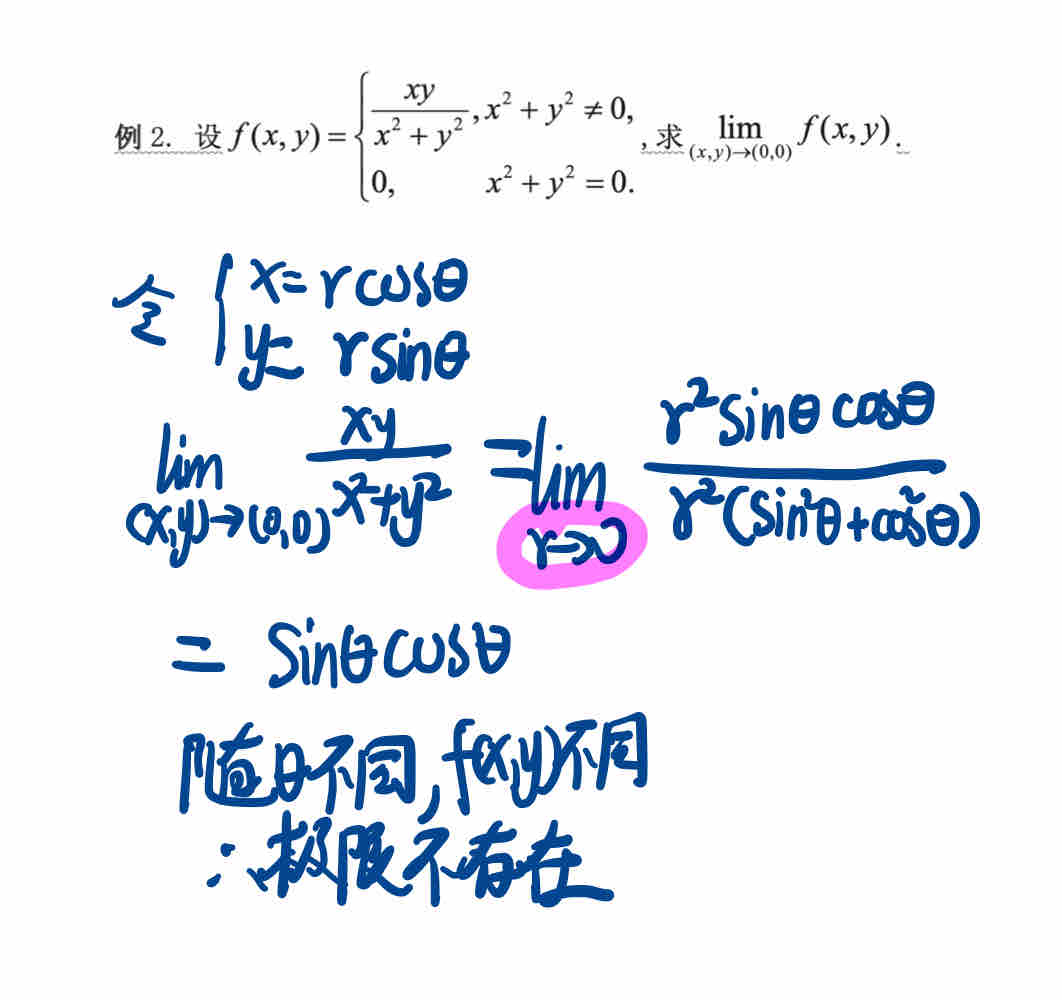 例 2. 设 f(x, y) = { xy / (x² + y²), x² + y² ≠ 0, , 求 lim (x,y)→(0,0) f(x, y).
0, x² + y² = 0.
令 { x = r cosθ
y = r sinθ
lim (x,y)→(0,0) xy / (x²+y²) = lim r→0 r² sinθ cosθ / r²(sin²θ + cos²θ)
= sinθ cosθ
随θ不同, f(x,y)不同
∴极限不存在